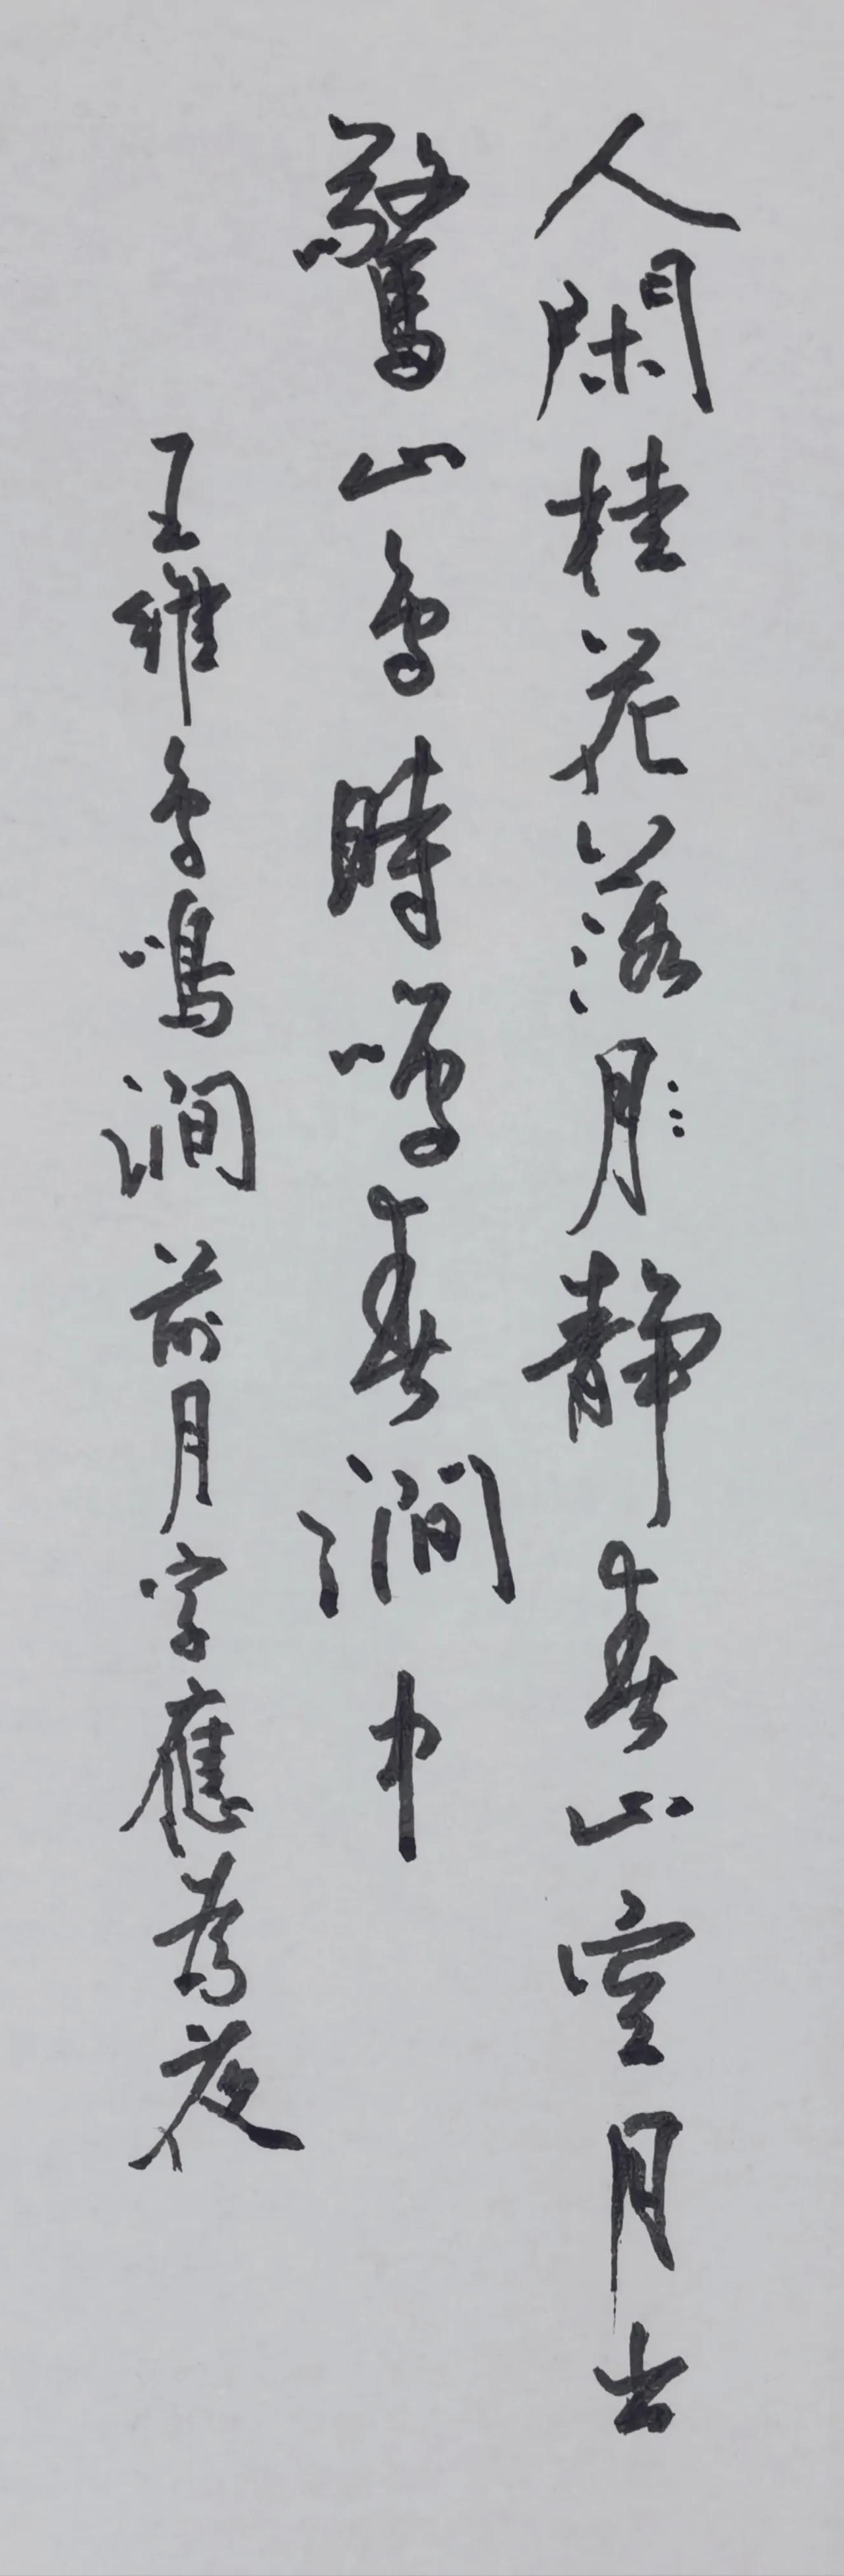 人閑桂花落月静春山空月出
驚山鳥時鳴春澗中
王維鳥鳴澗 前月字應為夜